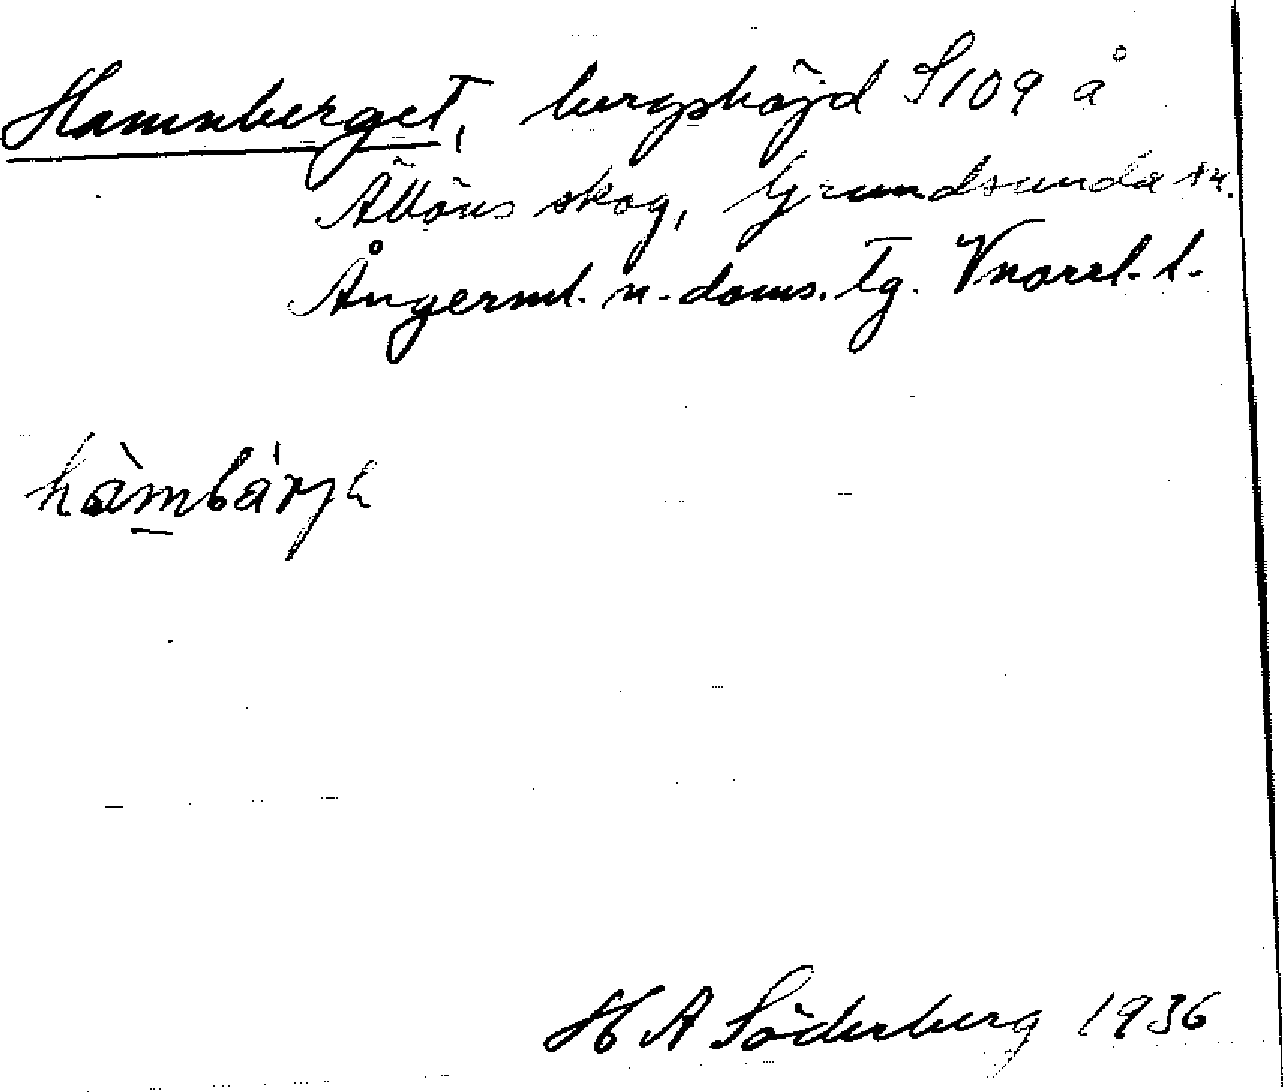 Hamnberget, bergshöjd S 109 å
Älvöns skog, Grundsunda sn.
Ångerml. n. doms. tg. Vnorrl. l.
hàmbárjə
H A Söderberg 1936